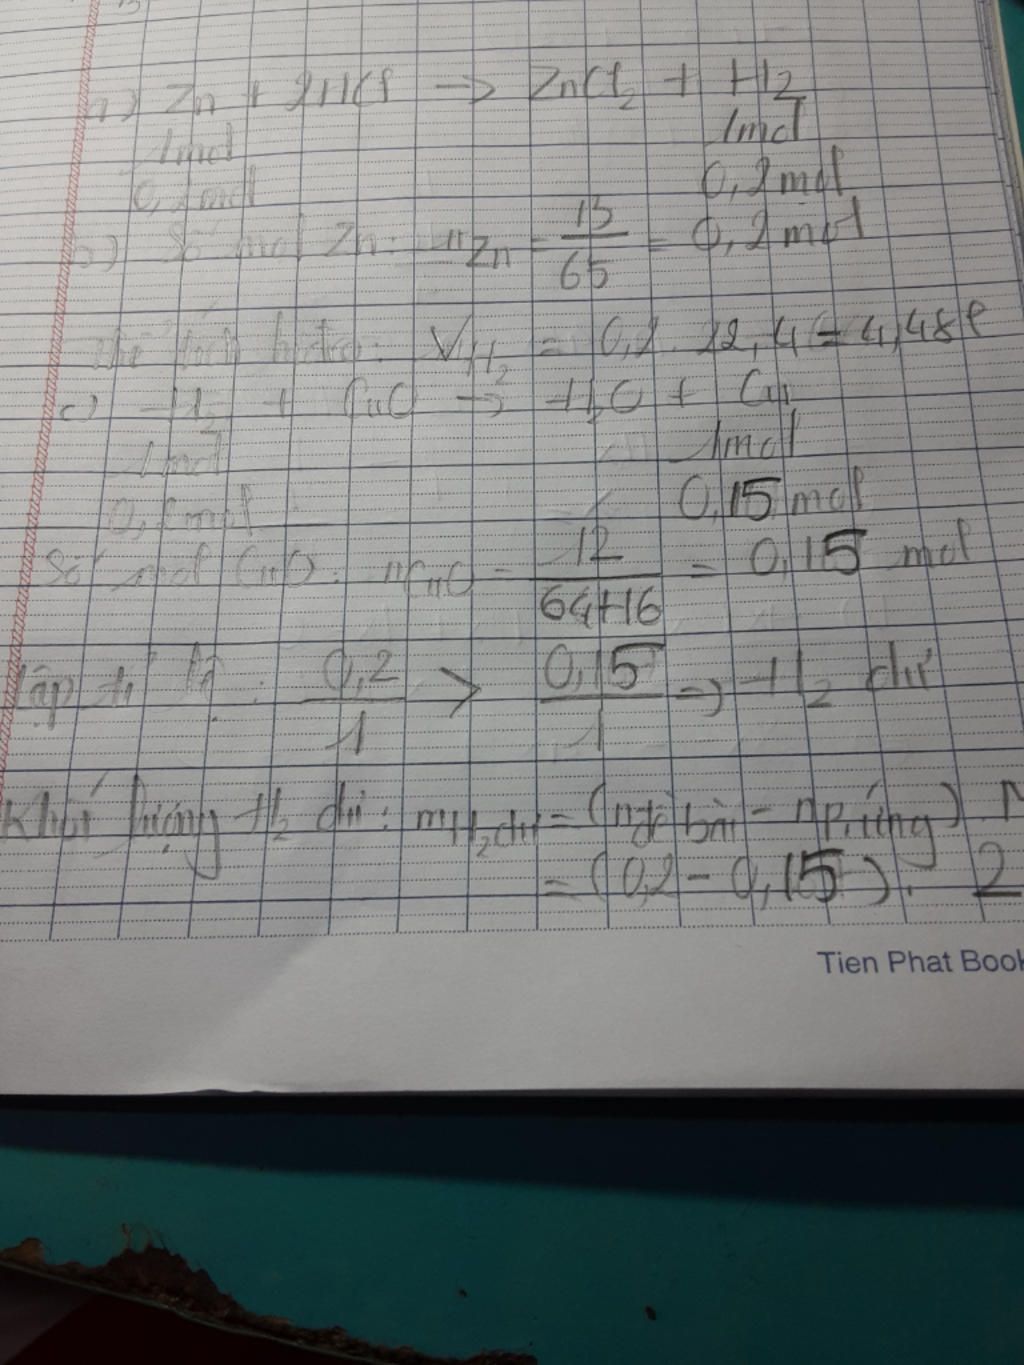 a) Zn + 2HCl → ZnCl₂ + H₂
1mol 1mol
0,2mol 0,2mol
b) Số mol Zn: nZn = 13/65 = 0,2 mol
Thể tích hiđro: VH₂ = 0,2. 22,4 = 4,48l
c) H₂ + CuO → H₂O + Cu
1mol 1mol
0,2mol 0,15 mol
Số mol CuO: nCuO = 12/64+16 = 0,15 mol
Lập tỉ lệ: 0,2/1 > 0,15/1 ⇒ H₂ dư
Khối lượng H₂ dư: mH₂dư = (nđề bài - np.ứng). M
= (0,2 - 0,15). 2
Tien Phat Book